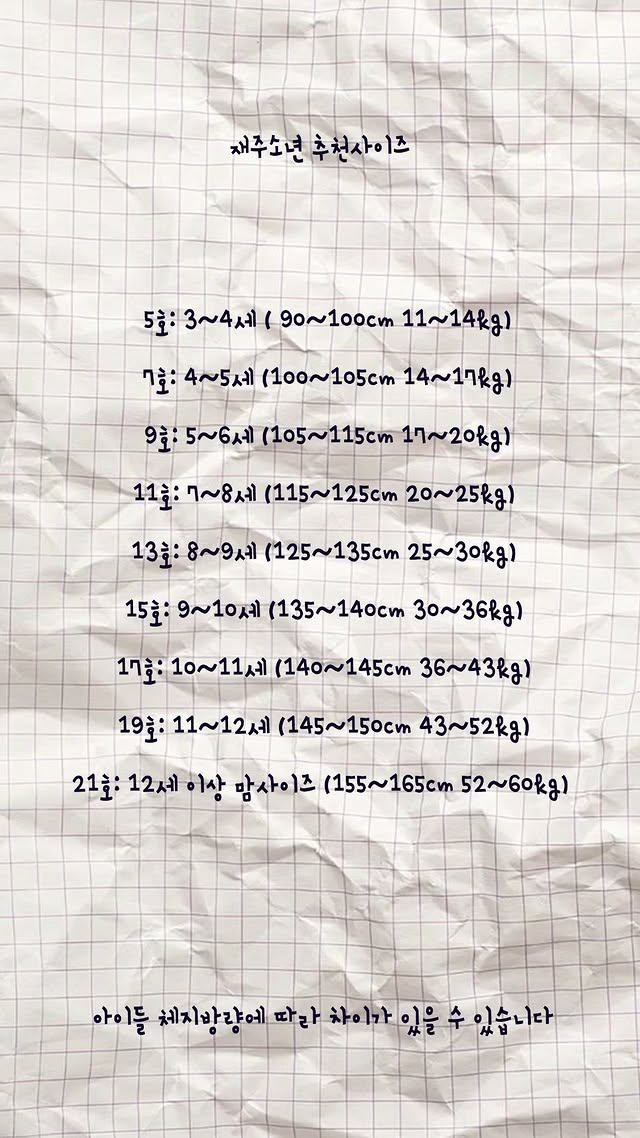 재주소년 추천사이즈
5호: 3~4세 ( 90~100cm 11~14kg)
7호: 4~5세 (100~105cm 14~17kg)
9호: 5~6세 (105~115cm 17~20kg)
11호: 7~8세 (115~125cm 20~25kg)
13호: 8~9세 (125~135cm 25~30kg)
15호: 9~10세 (135~140cm 30~36kg)
17호: 10~11세 (140~145cm 36~43kg)
19호: 11~12세 (145~150cm 43~52kg)
21호: 12세 이상 맘사이즈 (155~165cm 52~60kg)
아이들 체지방량에 따라 차이가 있을 수 있습니다